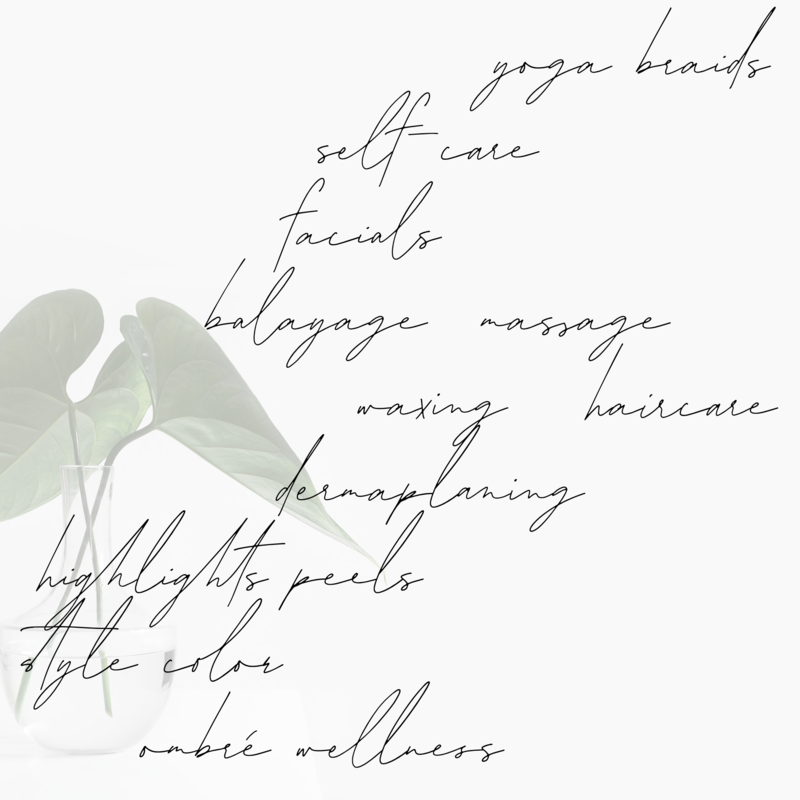 yoga braids
self-care
facials
balayage massage
waxing haircare
dermaplaning
highlights peels
style color
ombré wellness